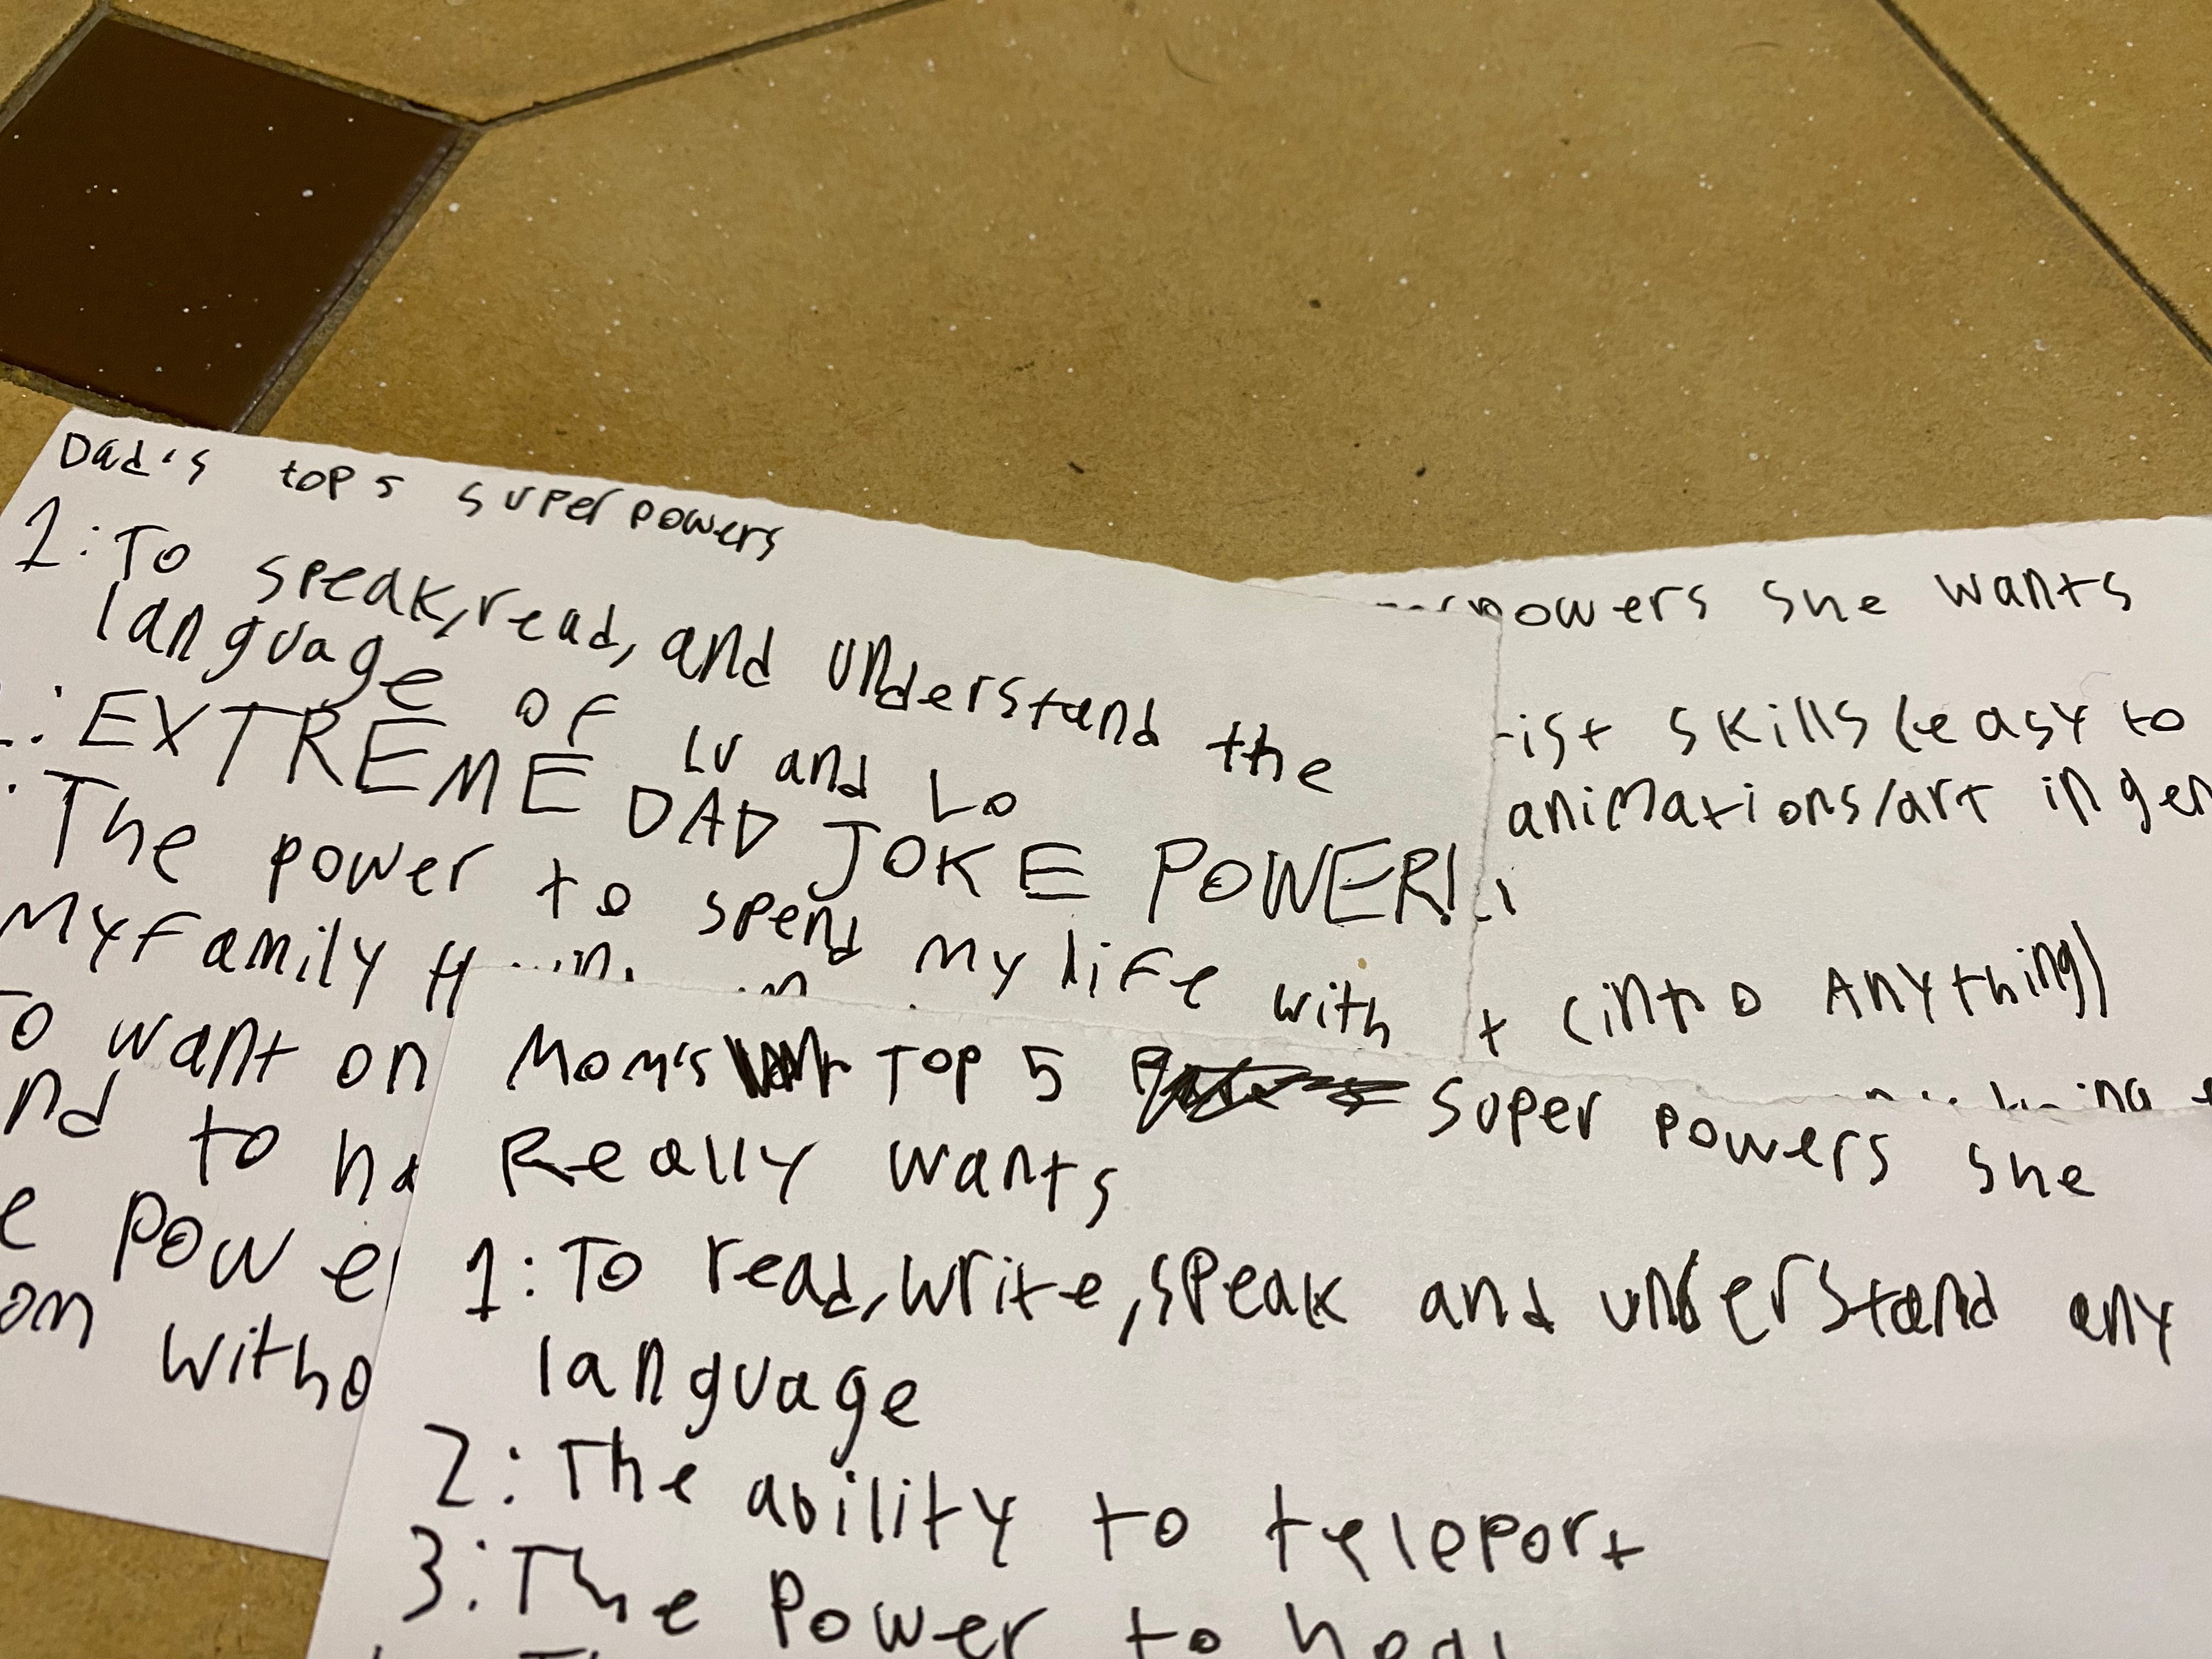 Dad's top 5 superpowers
1: To speak, read, and understand the
language of LV and Lo
: EXTREME DAD JOKE POWER!
: The power to spend my life with
My family
To want on
nd to
e Powe
on witho
powers she wants
-ist skills (easy to
animations/art in gen
(into Anything)
Mom's Top 5 super powers she
Really wants
1: To read, write, speak and understand any
language
2: The ability to teleport
3: The Power to heal